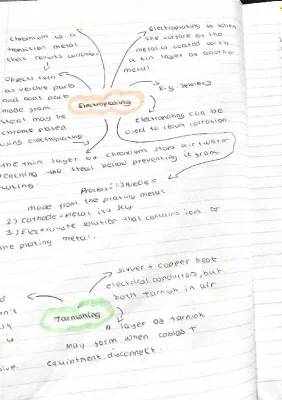 Chromium is a
transition metal
that resists corrosion
Objects such
as vehicle parts
and boat parts
made from
steel may be
chrome plated
using electroplating.
Electroplating is when
the surface of the
metal is coated with
a thin layer of another
metal
Electroplating
E.g. jewellery
electroplating can be
used to resist corrosion.
the thin layer of chromium stops air + water
reaching the steel below preventing it from
rusting.
Process: 1)
made from the plating metal
2) Cathode = metal
3) Electrolyte = solution that contains ions of
the plating metal.
silver + copper best
electrical conductors, but
both tarnish in air
Tarnishing
A layer of tarnish
may form when cables +
equipment disconnect.